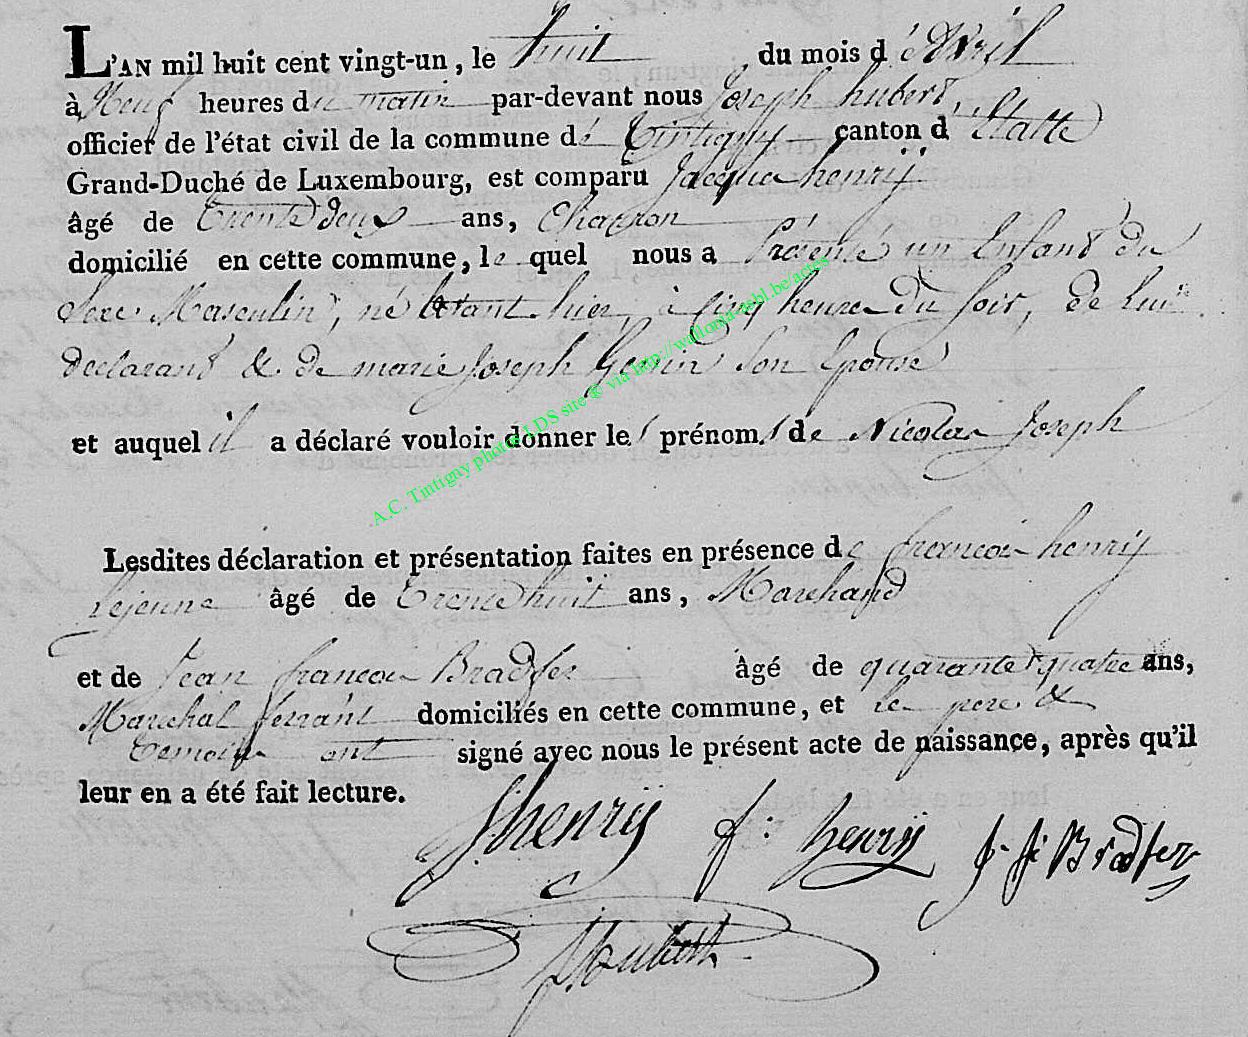 L'AN mil huit cent vingt-un, le huit du mois d'Avril
à Neuf heures du matin par-devant nous Joseph hubert,
officier de l'état civil de la commune de Tintigny canton d'Etalle
Grand-Duché de Luxembourg, est comparu Jacques henrÿ
âgé de trente deux ans, Charron
domicilié en cette commune, le quel nous a présenté un Enfant du
Sexe Masculin, né hier, à cinq heures du soir, de lui
declarant & de marie Joseph son Epouse
et auquel il a déclaré vouloir donner les prénoms de Nicolas Joseph
Lesdites déclaration et présentation faites en présence de françois henrÿ
lejeune âgé de trente huit ans, Marchand
et de Jean françois Bradfer âgé de quarante quatre ans,
Marechal ferrant domiciliés en cette commune, et les pere &
temoins ont signé avec nous le présent acte de naissance, après qu'il
leur en a été fait lecture.
J. henrÿ f: henrÿ j. f. Bradfer
J. Hubert
A.C. Tintigny photos LDS site @ via http://wallonia-asbl.be/actes